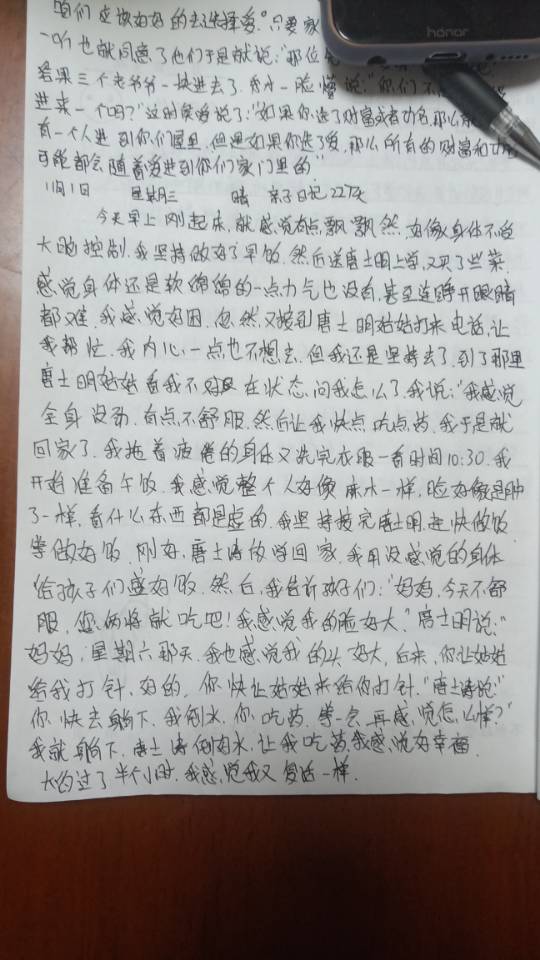 咱们应该好好的去选择爱。"只要家
一听也就同意了他们于是就说:"那位
honor
结果三个老爷爷一块进去了.我一脸懵说:"你们不
进来一个吗?"这时候爱说了:"如果你选了财富或者功名,那么
有一个人进到你们屋里,但是如果你选了爱,那么所有的财富和功
可能都会随着爱进到你们家门里的."
11月1日 星期三 晴 亲子日记22天
今天早上刚起床,就感觉有点飘飘然,好像身体不受
大脑控制.我坚持做好了早饭.然后送唐士明上学,又买了些菜.
感觉身体还是软绵绵的一点力气也没有,甚至连睁开眼睛
都难.我感觉好困.忽然又接到唐士明姑姑打来电话,让
我帮忙.我内心一点也不想去.但我还是坚持去了.到了那里
唐士明姑姑看我不在状态,问我怎么了.我说:"我感觉
全身没劲.有点不舒服.然后让我快点吃点药.我于是就
回家了.我拖着疲倦的身体又洗完衣服一看时间10:30.我
开始准备午饭.我感觉整个人好像麻木一样,脸好像是肿
了一样,看什么东西都是虚的.我坚持接完唐士明,赶快做饭
等做好饭.刚好,唐士涛放学回家.我用没感觉的身体
给孩子们盛好饭.然后,我告诉孩子们:"妈妈,今天不舒
服.您俩将就吃吧!我感觉我的脸好大."唐士明说:"
妈妈,星期六那天.我也感觉我的头好大,后来,你让姑姑
给我打针.好的.你快让姑姑来给你打针."唐士涛说"
你快去躺下.我倒水.你吃药.等一会,再感觉怎么样?"
我就躺下.唐士涛倒好水.让我吃药,我感觉好幸福.
大约过了半个小时.我感觉我又复活一样.